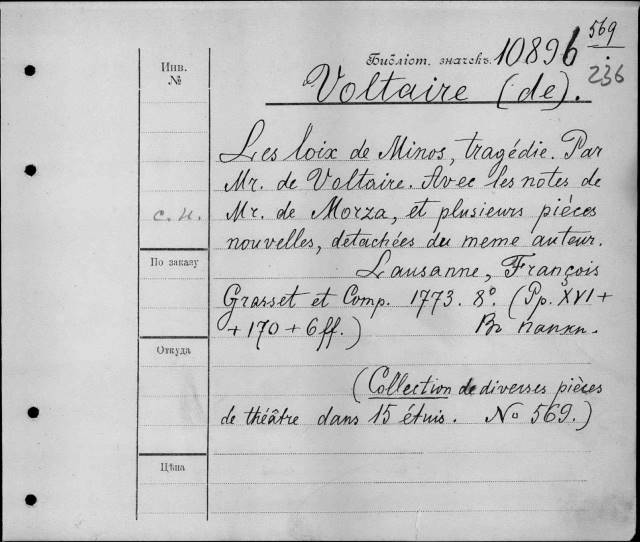 569
Инв.
№
Библіот. значекъ. 10896
236
Voltaire (de).
Les loix de Minos, tragédie. Par
Mr. de Voltaire. Avec les notes de
с. н.
Mr. de Morza, et plusieurs pièces
nouvelles, detachées du meme auteur.
По заказу
Lausanne, François
Grasset et Comp. 1773. 8º. (Pp. XVI +
+ 170 + 6 ff.) Въ папкѣ.
Откуда
(Collection de diverses pièces
de théâtre dans 15 étuis. No 569.)
Цѣна